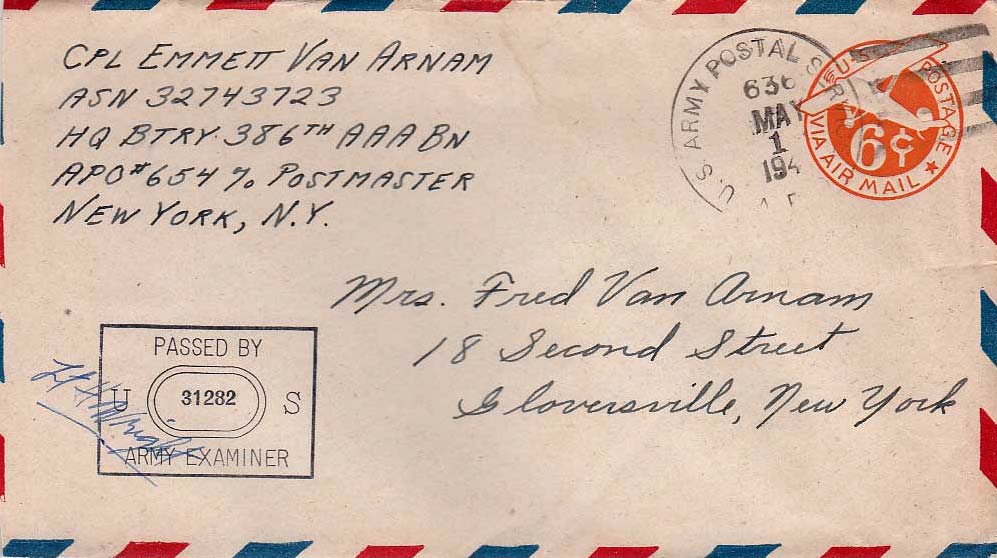 CPL EMMETT VAN ARNAM
ASN 32743723
HQ BTRY. 386TH AAA BN
APO #654 % POSTMASTER
NEW YORK, N.Y.
U.S. ARMY POSTAL
636
MAY
1
194
U.S. POSTAGE
6¢
VIA AIR MAIL
Mrs. Fred Van Arnam
18 Second Street
Gloversville, New York
PASSED BY
U 31282 S
ARMY EXAMINER